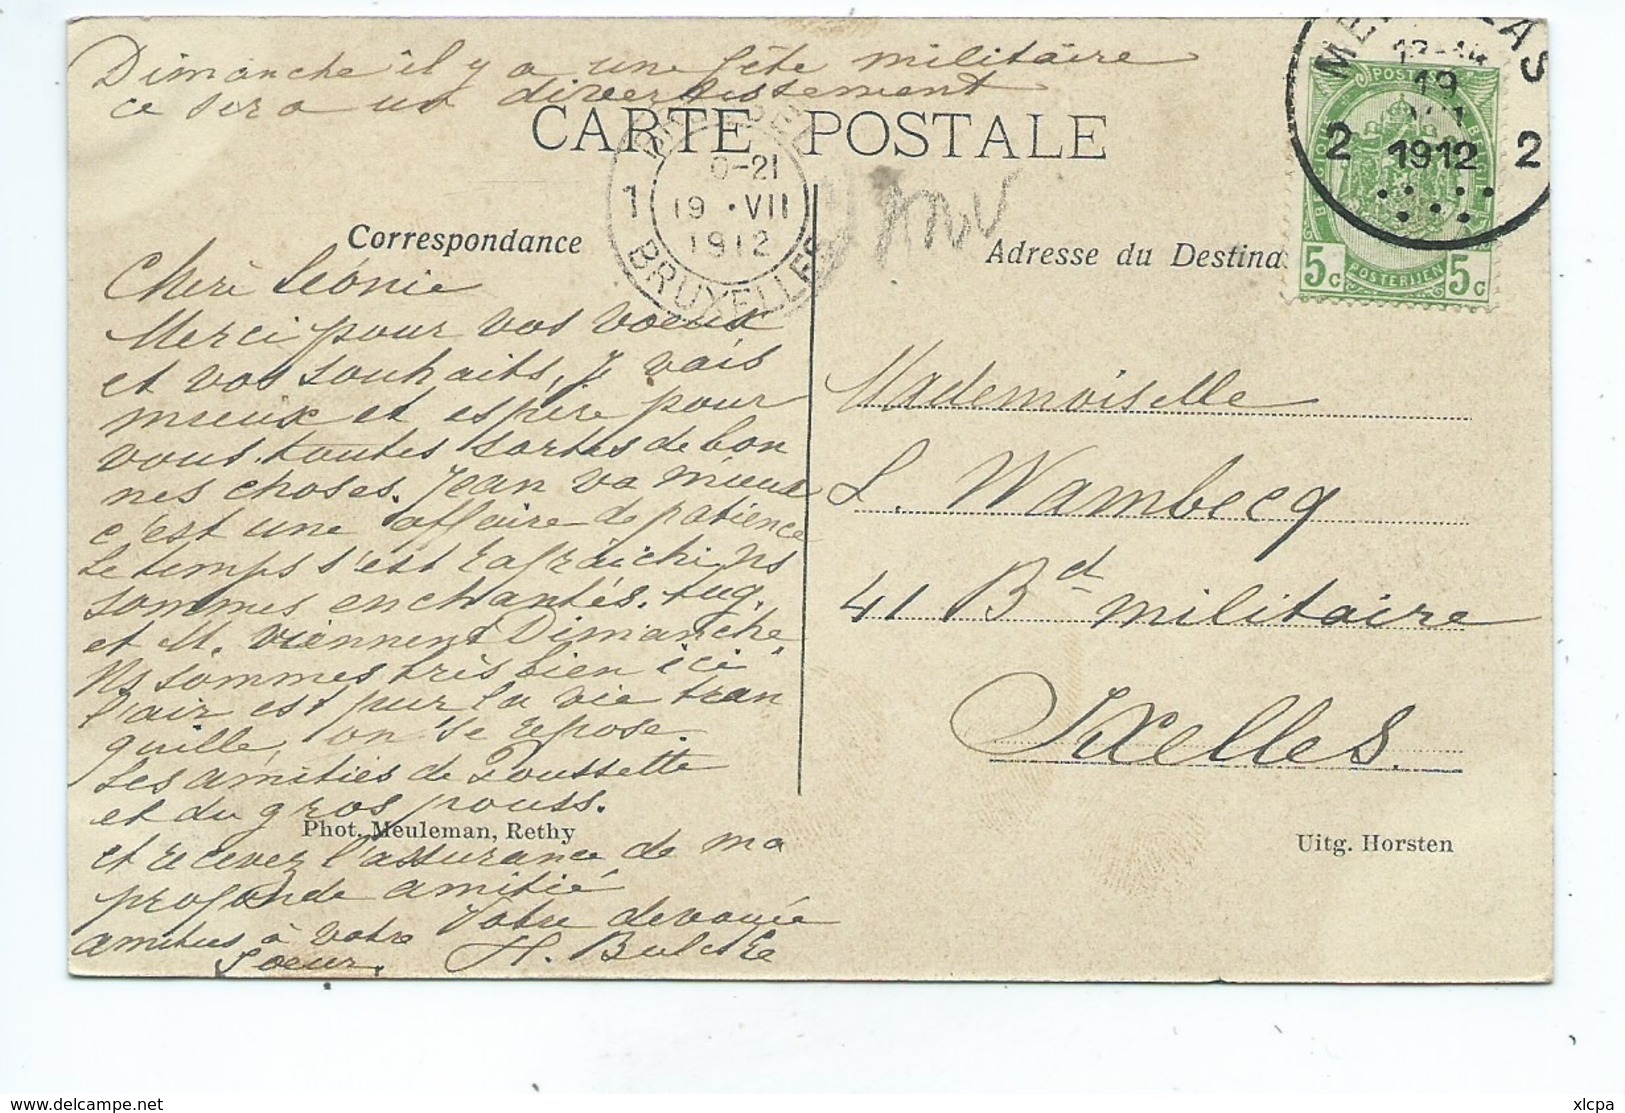 Dimanche il y a une fête militaire
ce sera un divertissement
CARTE POSTALE
Correspondance
Adresse du Destina
1
0-21
19 • VII
1912
BRUXELLES
19
1912
2 2
POSTERIJEN
5c 5c
Cheré Léonie
Merci pour vos voeux
et vos souhaits, je vais
mieux et espère pour
vous toutes sortes de bon
nes choses. Jean va mieux
c'est une affaire de patience
Le temps s'est rafraichi, Ns
sommes enchantés. Aug.
et M. viennent Dimanche,
Ns sommes très bien ici
l'air est pur la vie tran
quille, on se repose.
Les amitiés de Poussette
et du gros pouss.
Phot. Meuleman, Rethy
et recevez l'assurance de ma
profonde amitié
Votre devouée
amitiés à votre
soeur.
H. Bulcke
Mademoiselle
L. Wambecq
41 Bd militaire
Ixelles.
Uitg. Horsten
xlcpa
delcampe.net